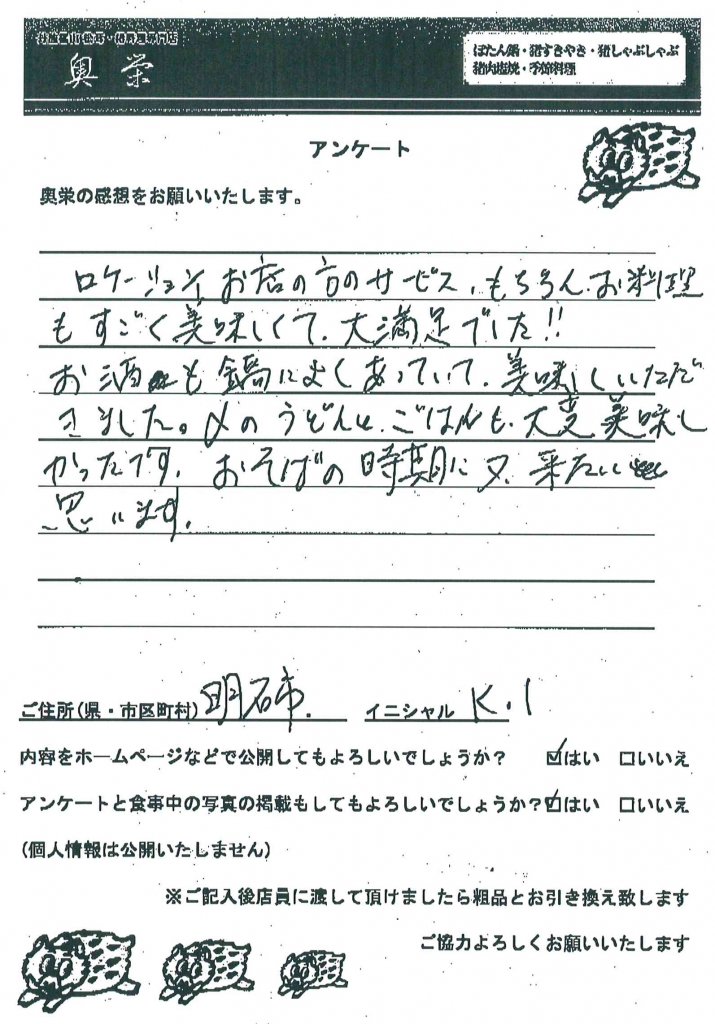 丹波篠山 松茸・猪料理専門店
奥栄
ぼたん鍋・猪すきやき・猪しゃぶしゃぶ
猪肉塩焼・季節料理
アンケート
奥栄の感想をお願いいたします。
ロケーション、お店の方のサービス、もちろん、お料理
もすごく美味しくて、大満足でした!!
お酒も鍋によくあっていて、美味しくいただ
きました。〆のうどんと、ごはんも、大変美味し
かったです。おそばの時期に又、来たいと
思います。
ご住所(県・市区町村) 明石市. イニシャル K.I
内容をホームページなどで公開してもよろしいでしょうか? ☑はい □いいえ
アンケートと食事中の写真の掲載もしてもよろしいでしょうか?☑はい □いいえ
(個人情報は公開いたしません)
※ご記入後店員に渡して頂けましたら粗品とお引き換え致します
ご協力よろしくお願いいたします